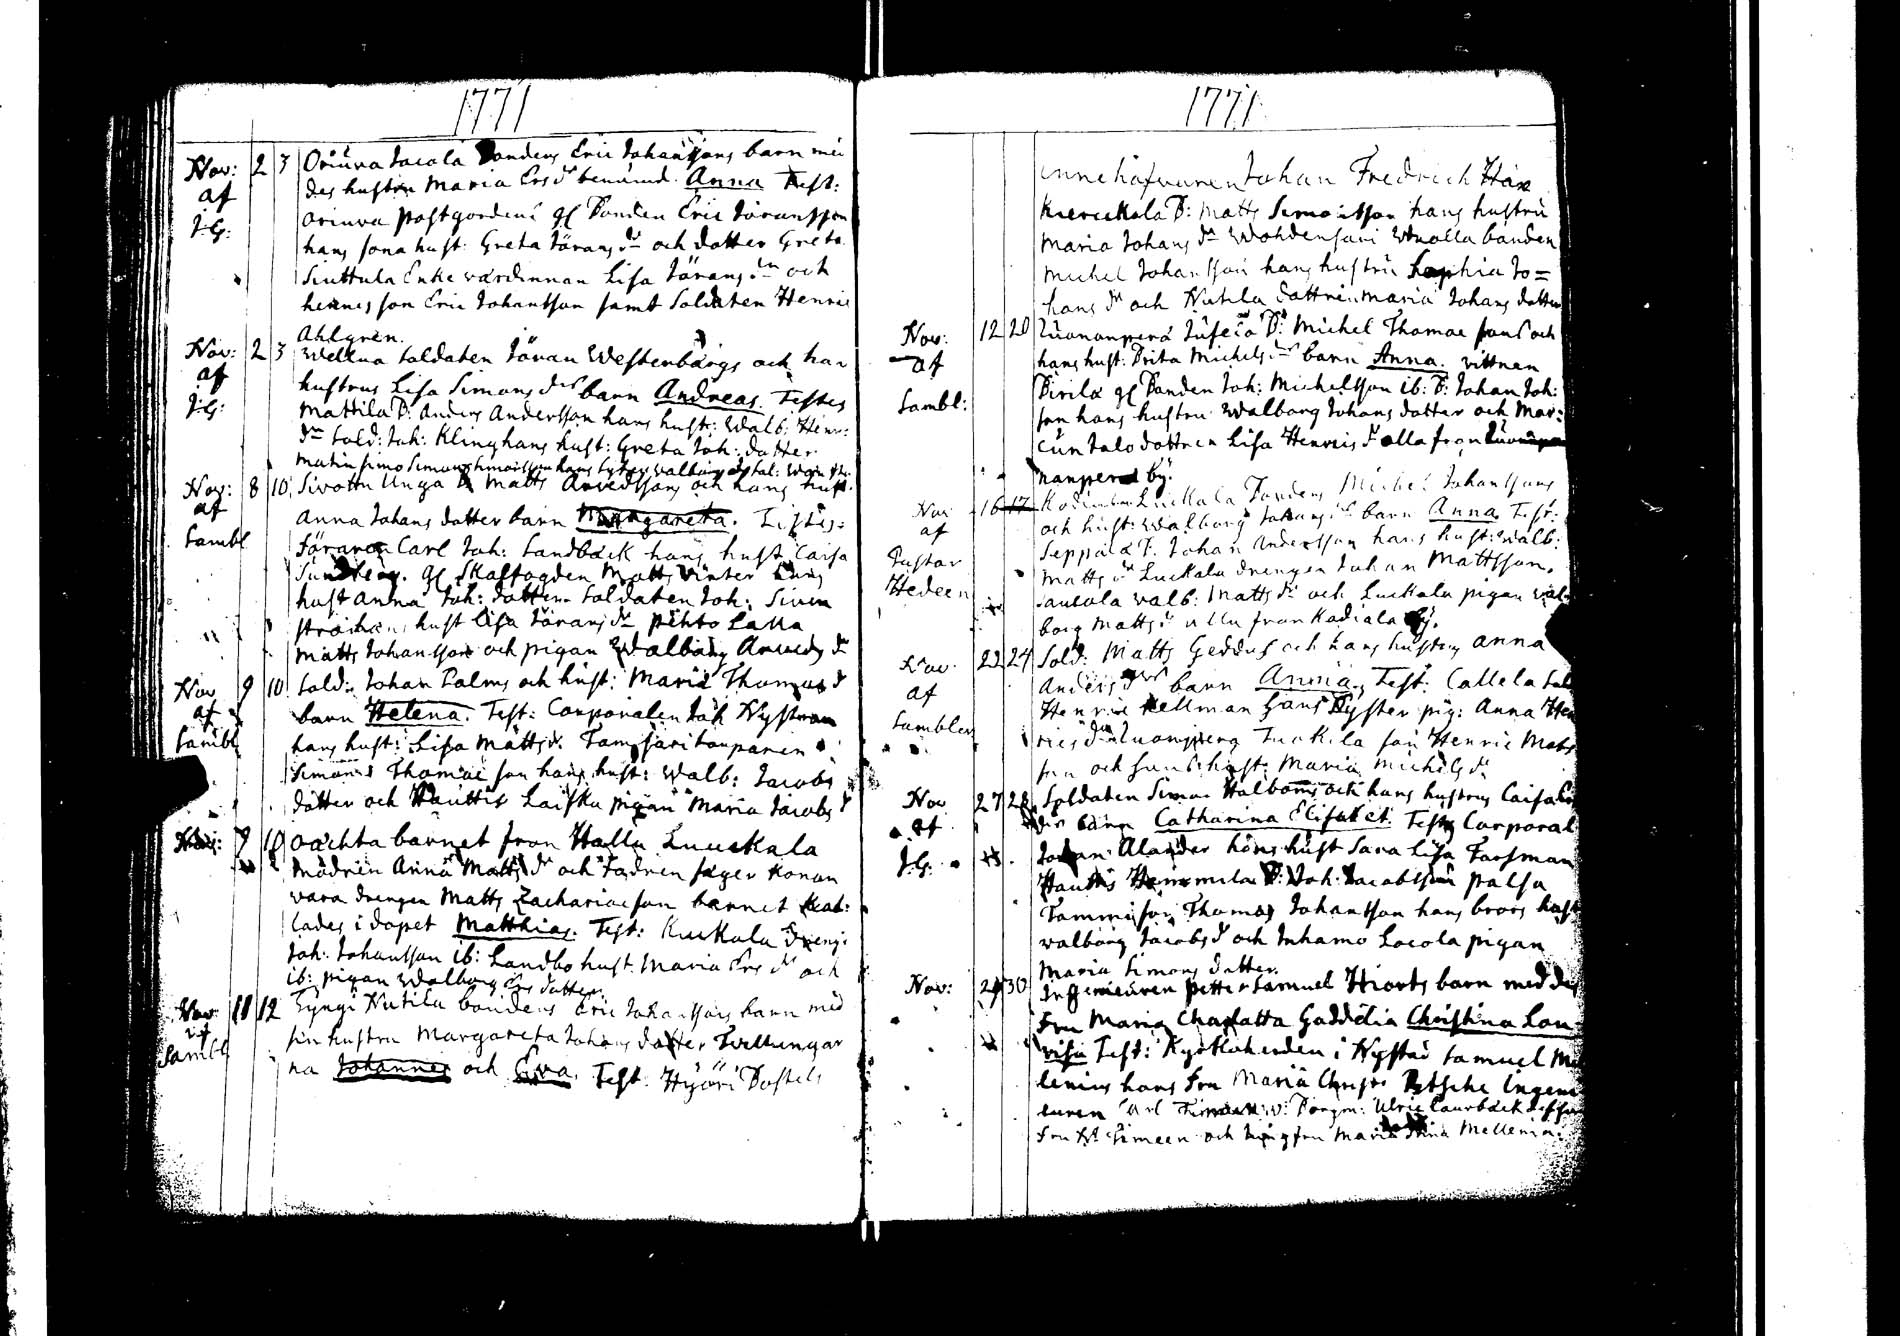 1771
Nov: 2 3 Oriüva Jacola Bondens Eric Johanssons barn mä
af des hustru Maria Ersdr benämd Anna Test:
J:G: Oriuva postgordens gl Bonden Eric Jöransson
hans sona hust: Greta Jöransdr och dotter Greta
Siuttula Enke värdinnan Lisa Jöransdr och
hennes son Eric Johansson samt Soldaten Henric
Ahlgren.
Nov: 2 3 Wellua Soldaten Jöran Westenbärgs och han
af hustrus Lisa Simonsdrs barn Andreas. Testes
J:G: Mattila B: Anders Andersson hans hust: Walb: Henr:
dr Sold: Joh: Kling hans hust: Greta Joh: dotter
Simo Simon Simonsson hans Syster Walborg
Nov: 8 10 Sivotin Unga B Matts Arvedssons och hans hust
af Anna Johans dotter barn Margareta. Testes:
Sambl Föraren Carl Joh: Sandbäck hans hust Caisa
Sundberg. gl Skaffogden Matts Winter hans
hust Anna Joh: dotter. Soldaten Joh: Siven
hust Lisa Jöransdr Pehto Lalla
Matts Johansson och pigan Walborg Arvedsdr
Nov 9 10 Sold: Johan Palms och hust: Maria Thomasdr
af barn Helena. Test: Corporalen Joh Nyström
Sambl hans hust: Lisa Mattsdr. Tamsaari torparen
Simon Thomae son hans hust: Walb: Jacobs
dotter och Hauttis Laiska pigan Maria Jacobsdr
Nov: 9 10 Oächta barnet från Hallu Luuckala
Modren Anna Mattsdr och Fadren säger konan
vara drengen Matts Zachariae son barnet kal:
lades i dopet Matthias. Test: Kuckola Dreng:
Joh: Johansson ib: Landbo hust. Maria Ersdr och
ib: pigan Walborg Ers dotter.
Nov: 11 12 Tyngi Nutila bondens Eric Johanssons barn mäd
af sin hustru Margareta Johans dotter Twillingar
Sambl na Johannes och Eva. Test: Hyöri Bostels
1771
innehafvaren Johan Fredrich Hax
Kierickala B: Matts Simonsson hans hustru
Maria Johansdr Wohdensari Wnolla bonden
Michel Johansson hans hustru Sophia Jo=
hansdr och Nutila dottren Maria Johans dotter
Nov: 12 20 Luonanperä B: Michel Thomae sons och
af hans hust: Brita Michelsdrs barn Anna. vittnen
Sambl: Pirilä gl Bonden Joh: Michelsson ib: B: Johan Joh:
son hans hustru Walborg Johans dotter och Mar:
cün talo dottren Lisa Henricsdr alla från
nanperä by.
Nov 16 17 Kodiala Luckala Bondens Michel Johanssons
af och hust: Walborg Johansdr barn Anna Test:
Pastor Seppälä B. Johan Andersson hans hust: Walb:
Hedeen Mattsdr Luckala drengen Johan Mattsson.
Walb: Mattsdr och Luckala pigan Wal=
borg Mattsdr alla från Kodiala by.
Nov. 22 24 Sold: Matts Geddus och hans hustru Anna
af Andersdrs barn Anna. Test: Callela Sol
Sambler Henric Hellman hans Syster pig: Anna Hen
ricsdr Luonperä Tuckila son Henric Mats
son och hans hust: Maria Michelsdr
Nov 27 28 Soldaten Simon Halboms och hans hustrus Caisa
af barn Catharina Elisabet. Test Corporal
J:G: Johan Alander hans hust Sara Lisa Forsman
Hauttis Hemmila B: Joh: Jacobsson Palsa
Tammi son Thomas Johansson hans brors hust
Walborg Jacobsdr och Inhamo Lacola pigan
Maria Simons dotter
Nov: 29 30 Ingenieuren Petter Samuel Hiorts barn med des
Fru Maria Charlotta Gaddelia Christina Lou
visa Test: Kyrkoherden i Nystad Samuel Me
lenius hans Fru Maria Christ: Ingeni
euren Carl Borgm: Ulric Laurbäck dess fru
Fru och Jungfru Maria Stina Mellenia.